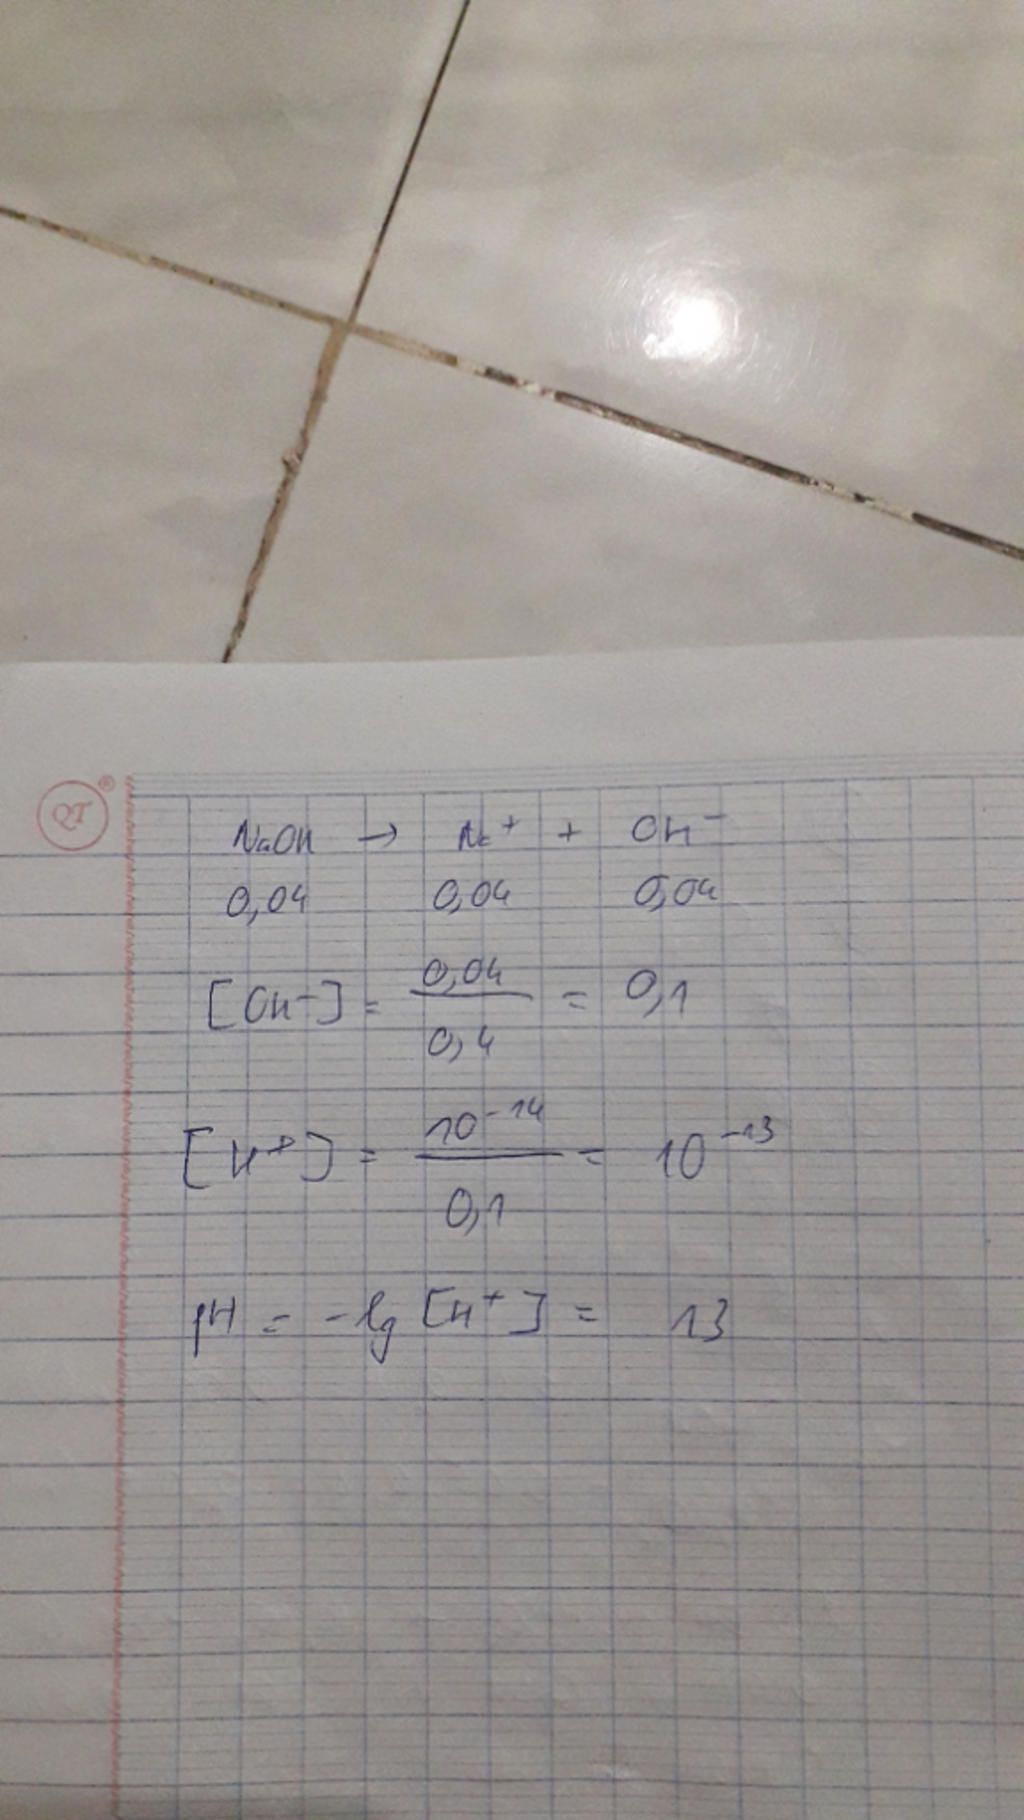 QT ®
NaOH → Na⁺ + OH⁻
0,04 0,04 0,04
[OH⁻] = 0,04 / 0,4 = 0,1
[H⁺] = 10⁻¹⁴ / 0,1 = 10⁻¹³
pH = -lg [H⁺] = 13